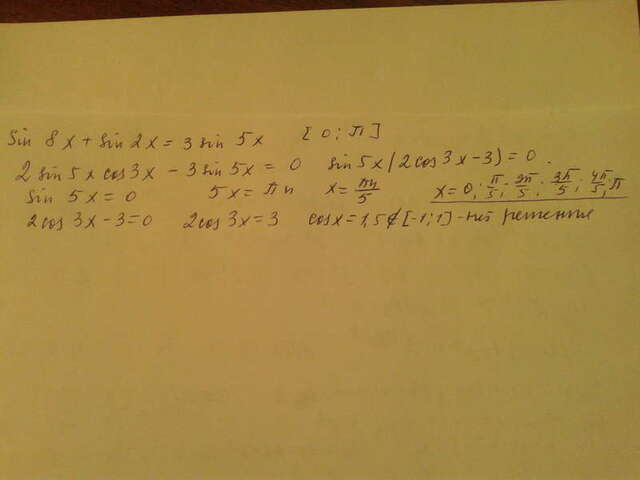 sin 8x + sin 2x = 3 sin 5x [0; π]
2 sin 5x cos 3x - 3 sin 5x = 0 sin 5x (2 cos 3x - 3) = 0.
sin 5x = 0 5x = πn x = πn/5 x = 0; π/5; 2π/5; 3π/5; 4π/5; π
2 cos 3x - 3 = 0 2 cos 3x = 3 cos x = 1,5 ∉ [-1; 1] - нет решения